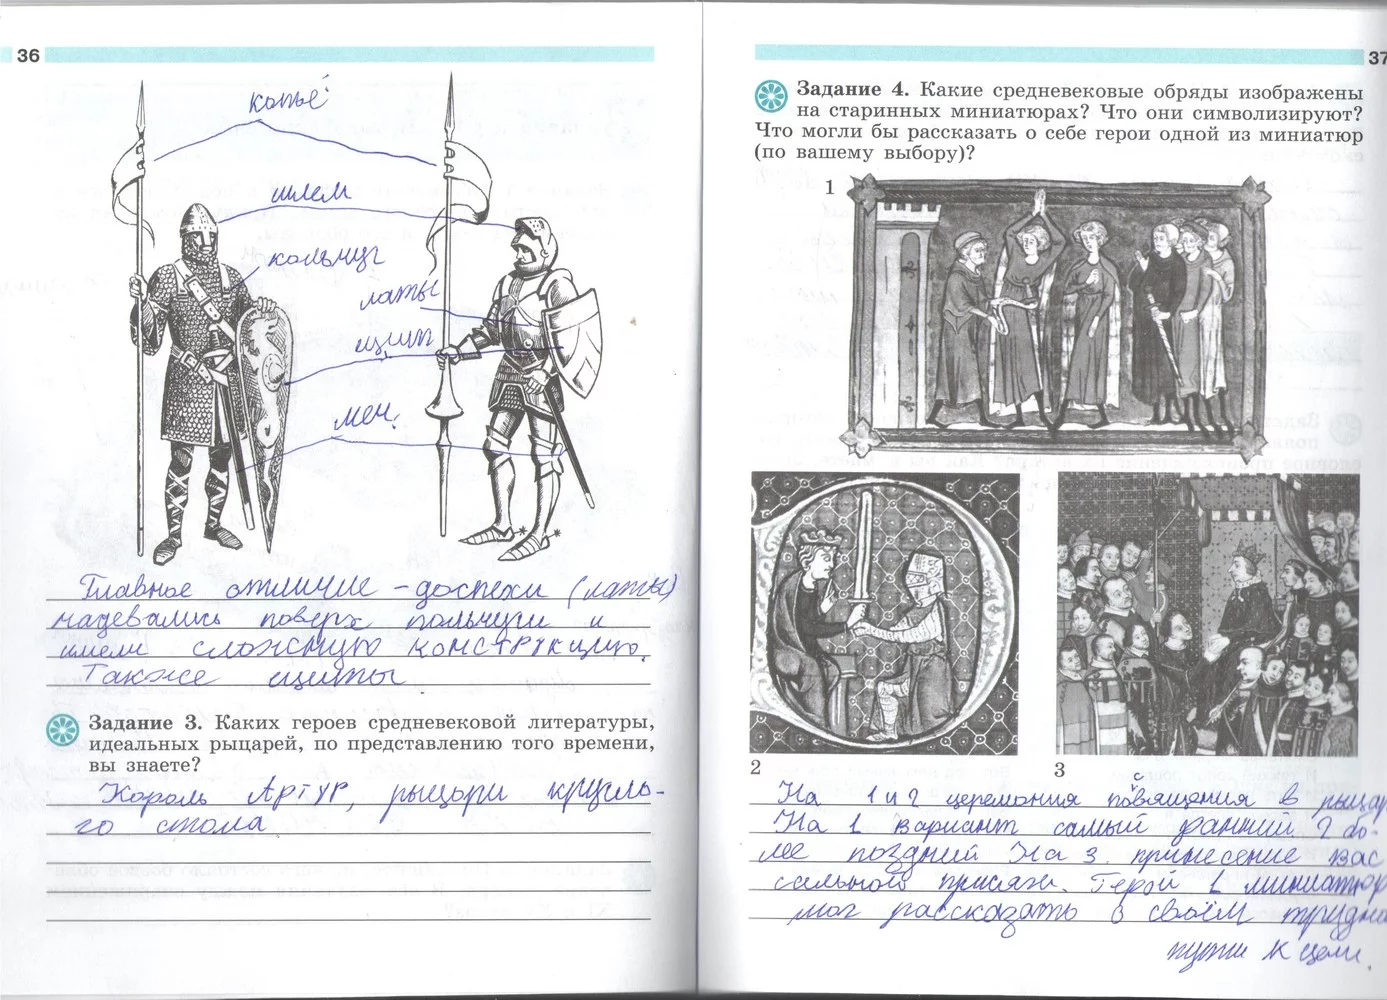 36
копьё
шлем
кольчуг
латы
щит
меч.
Главное отличие – доспехи (латы)
надевались поверх кольчуги и
имели сложную конструкцию.
Также щиты
Задание 3. Каких героев средневековой литературы,
идеальных рыцарей, по представлению того времени,
вы знаете?
Король Артур, рыцари кругло-
го стола
37
Задание 4. Какие средневековые обряды изображены
на старинных миниатюрах? Что они символизируют?
Что могли бы рассказать о себе герои одной из миниатюр
(по вашему выбору)?
1
2
3
На 1 и 2 церемония посвящения в рыцар
На 1 вариант самый ранний 2 бо-
лее поздний На 3. принесение вас
сальной присяги. Герой 1 миниатюр
мог рассказать о своём трудно
пути к цели.